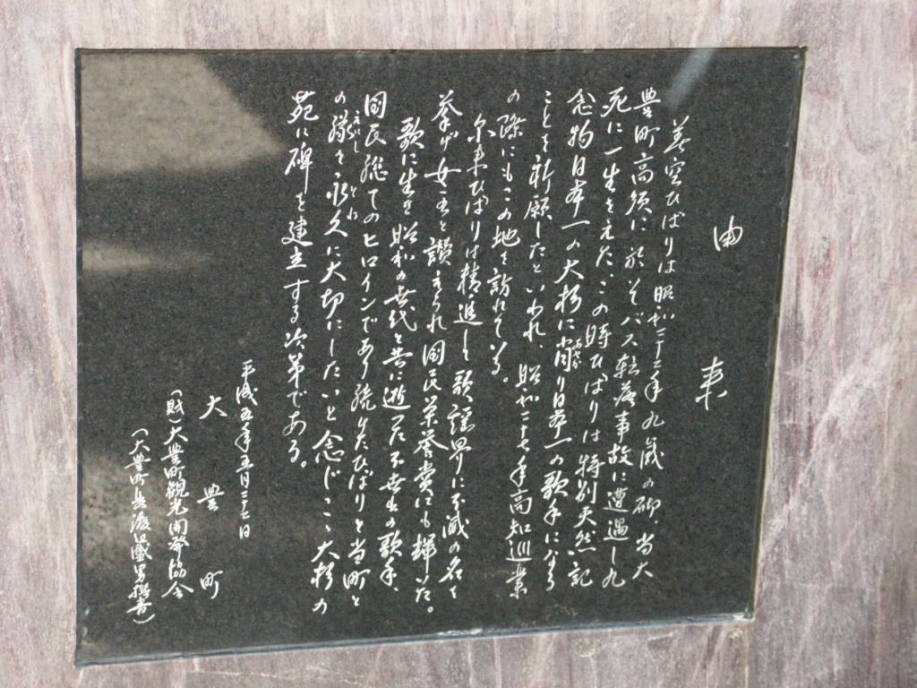 由来
美空ひばりは昭和二十二年九歳の砌、当大
豊町高須に於いてバス転落事故に遭遇し九
死に一生をえた、この時ひばりは特別天然記
念物日本一の大杉に肖り日本一の歌手になる
あやか
ことを祈願したといわれ、昭和二十七年高知巡業
の際にもこの地を訪れている。
尓来ひばりは精進して歌謡界に不滅の名を
挙げ女王と讃えられ國民栄誉賞にも輝いた。
歌に生き昭和の世代と共に逝った不世出の歌手、
國民総てのヒロインであり続けたひばりと当町と
の縁を永久に大切にしたいと念じここ大杉の
えにし とわ
苑に碑を建立する次第である。
平成五年五月二十二日
大豊町
(財)大豊町観光開発協会